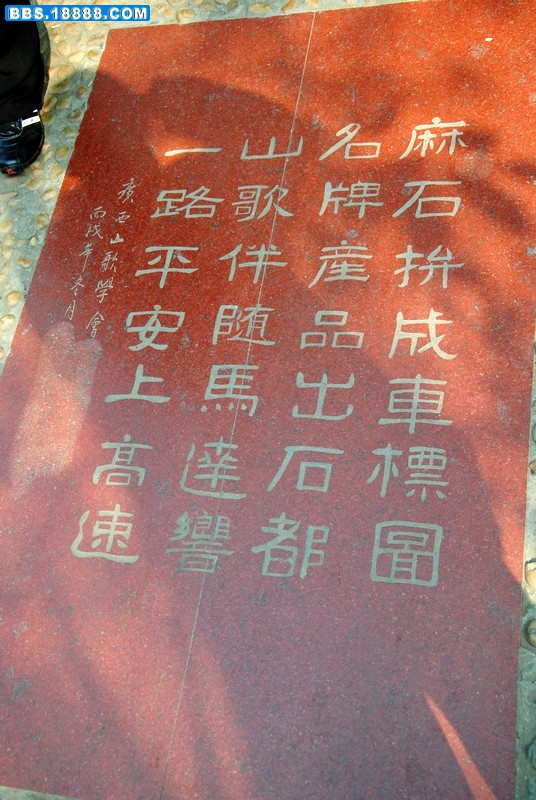 BBS.18888.COM
麻石拚成車標圖
名牌産品出石都
山歌伴随馬達響
一路平安上高速
廣西山歌學會
丙戌年冬月